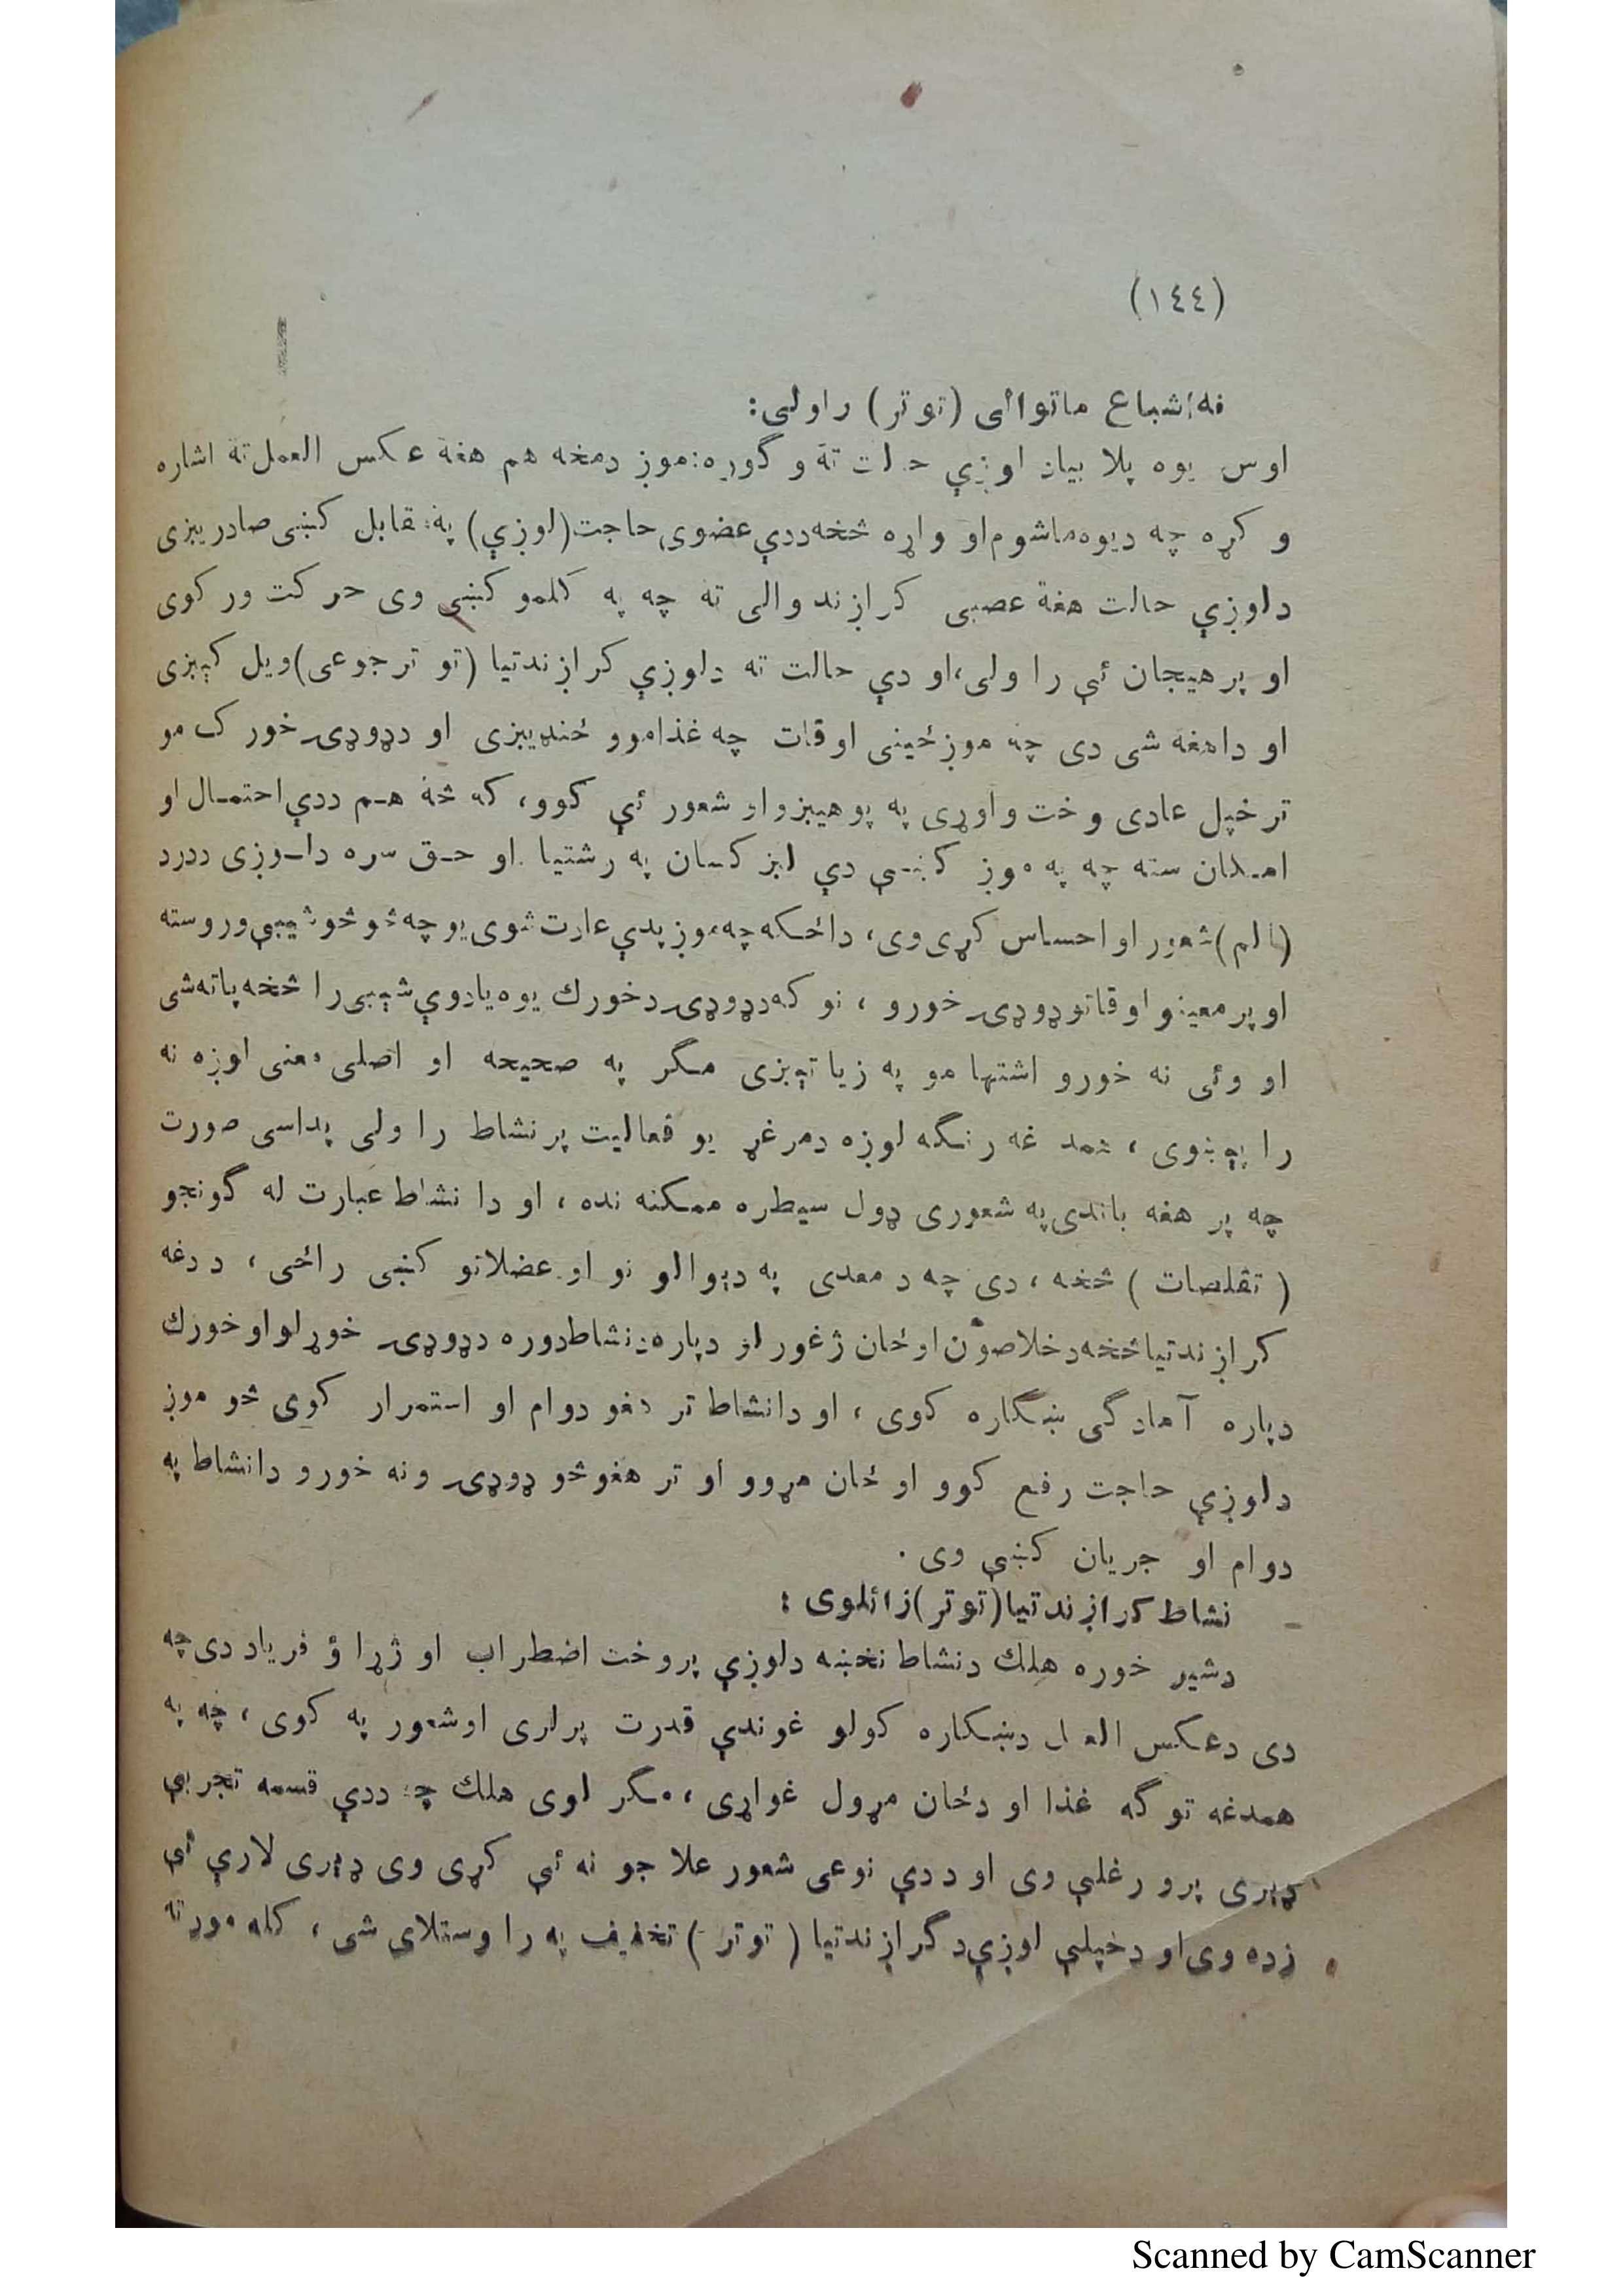 (١٤٤)
نه اشباع ماتوالی (توتر) راولی:
اوس یوه پلا بیان اوږې حالت تهٔ و گوره: موږ دمخه هم هغهٔ عکس العمل تهٔ اشاره
و کړه چه دیوه ماشوم او واړه څخه ددې عضوی حاجت (لوږې) پهٔ مقابل کښی صادریږی
دلوږې حالت هغهٔ عصبی کراږندوالی ته چه په کلمو کښی وی حرکت ورکوی
او پر هیجان ئې راولی، او دې حالت ته دلوږې کراږندتیا (توتر جوعی) ویل کېږی
او داهغه شی دی چه موږ ځینی اوقات چه غذاموو ځنډیږی او دډوډۍ خورک مو
تر خپل عادی وخت واوړی په پوهیږو او شعور ئې کوو، که څهٔ هم ددې احتمال او
امکان سته چه په موږ کښې دې لږ کسان په رشتیا او حق سره دلوږی ددرد
(الم) شعور او احساس کړی وی، داځکه چه موږ پدې عادت شوی یو چه څو څو شیبې وروسته
او پر معینو اوقاتو ډوډۍ خورو، نو که دډوډۍ دخورك یوه یادوې شېبی را څخه پاته شی
او وئی نه خورو اشتها مو په زیاتېږی مگر په صحیحه او اصلی معنی لوږه نه
را پېښوی، همدغه رنگه لوږه دمرغړ یو فعالیت پر نشاط راولی پداسی صورت
چه پر هغه باندی په شعوری ډول سیطره ممکنه نده، او دا نشاط عبارت له گونجو
(تقلصات) څخه، دی چه د معدی په دېوالو نو او عضلاتو کښی راځی، د دغه
کراږندتیا څخه دخلاصون او ځان ژغورلو دپاره دنشاط دوره دډوډۍ خوړلو او خورك
دپاره آمادگی ښکاره کوی، او دانشاط تر هغو دوام او استمرار کوی څو موږ
دلوږې حاجت رفع کوو او ځان مړوو او تر هغو څو ډوډۍ ونه خورو دانشاط په
دوام او جریان کښې وی.
نشاط کراږندتیا (توتر) زائلوی:
دشیر خوره هلك دنشاط نخښه دلوږې پر وخت اضطراب او ژړا ؤ فریاد دی چه
دی دعکس العمل دښکاره کولو غوندې قدرت پرلری او شعور په کوی، چه په
همدغه توگه غذا او دځان مړول غواړی، مگر لوی هلك چه ددې قسمه تجربې
ډېری پرو رغلې وی او ددې نوعی شعور علاجو نه ئې کړی وی ډېری لارې ئې
زده وی او دخپلې لوږې د گراږندتیا (توتر) تخفیف په را وستلای شی، کله مور ته
Scanned by CamScanner